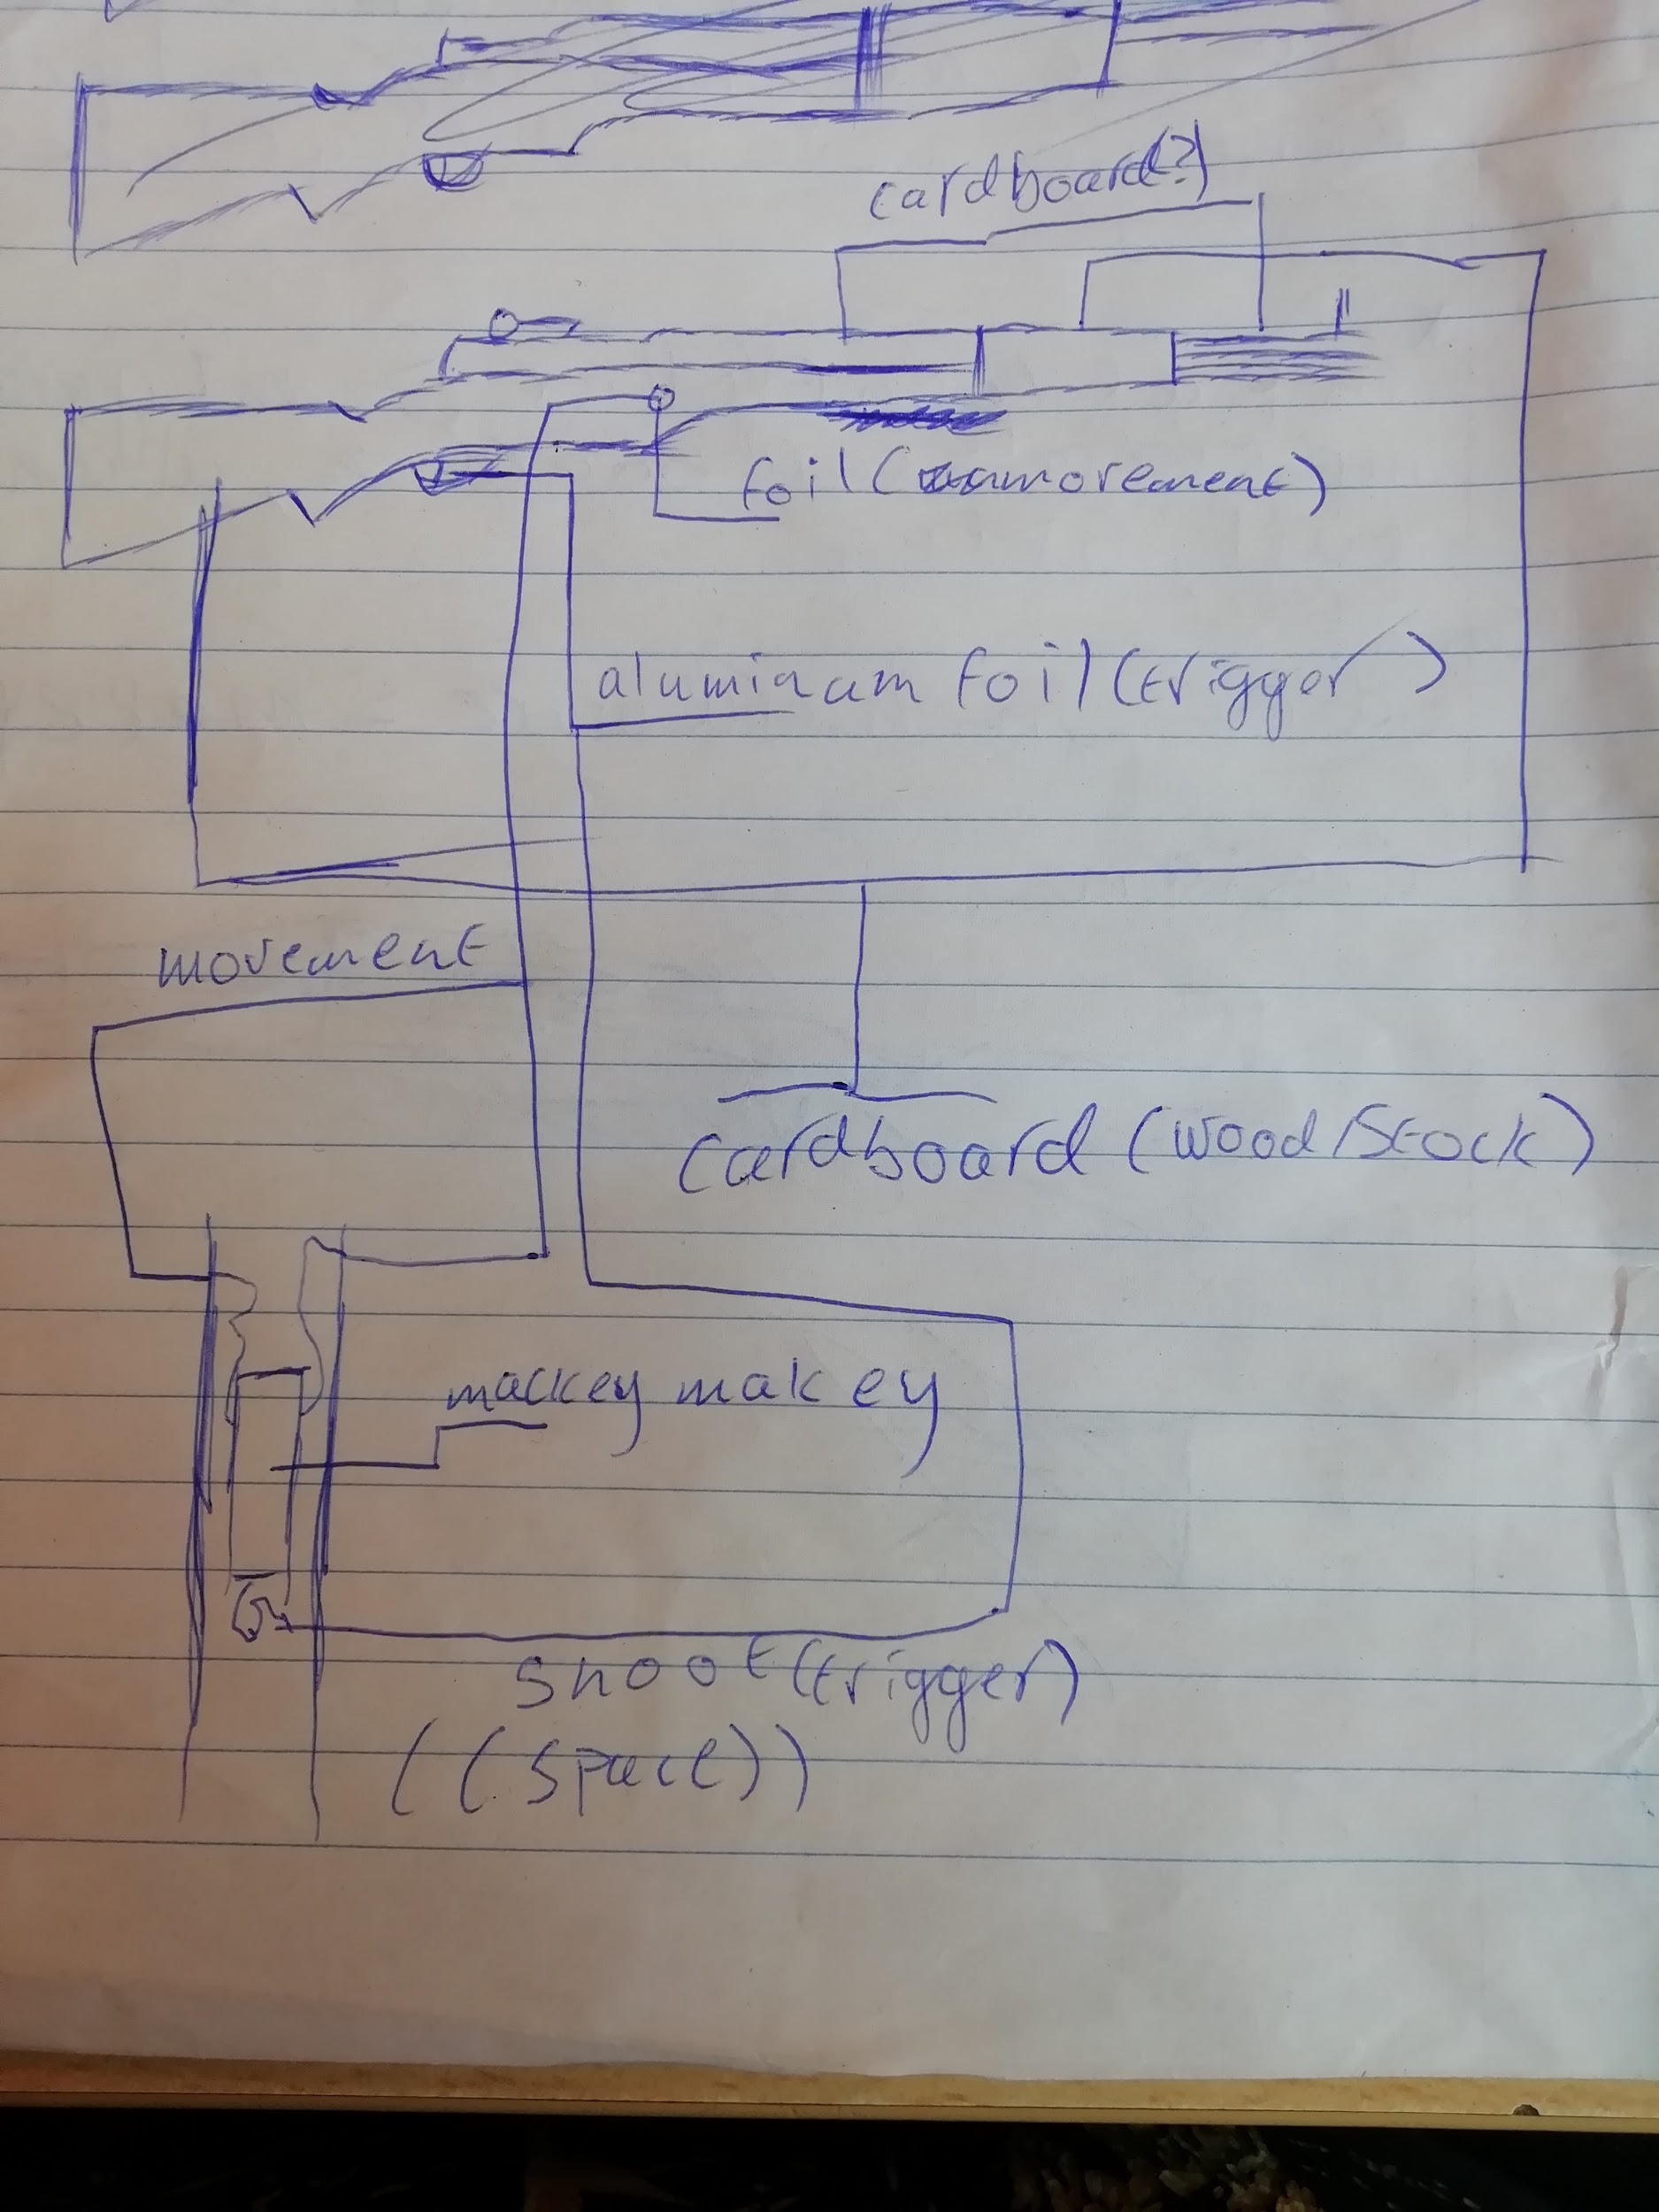 cardboard(?)
foil (movement)
aluminum foil (trigger)
movement
cardboard (wood/stock)
mackey makey
shoot (trigger)
((space))